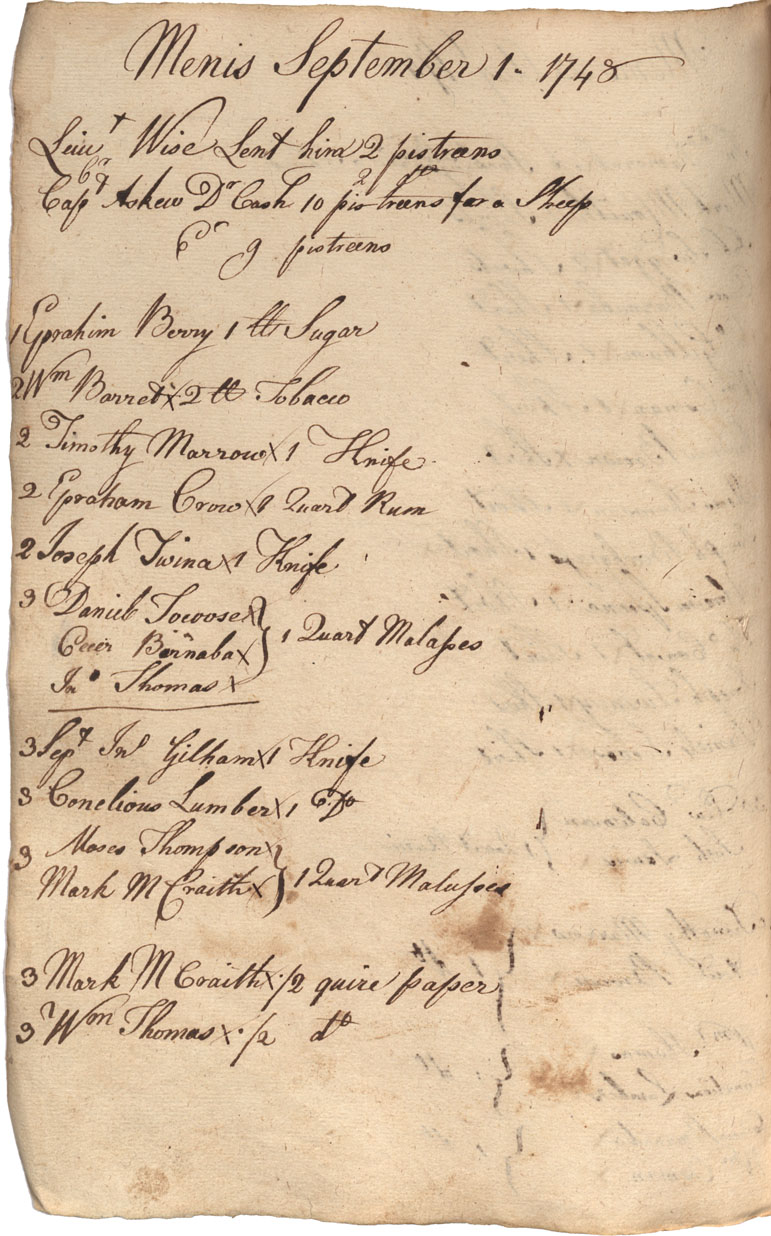 Menis September 1 - 1748
Leiut Wise Lent him 2 pistreens
Capt Askew Dr Cash 10 pistreens for a Sheep
Cr 9 pistreens
1 Eprahim Berry 1 lb Sugar
2 Wm Barret x 2 lb Tobacco
2 Timothy Marrow x 1 Knife
2 Epraham Crow x 1 Quart Rum
2 Joseph Twina x 1 Knife
3 Daniel Towose x
Barnaba x } 1 Quart Malasses
Jno Thomas x
3 Sept Jno Gilham x 1 Knife
3 Conelious Lumber x 1 Do
3 Moses Thompson x
Mark McCraith x } 1 Quart Malasses
3 Mark McCraith x 1/2 quire paper
3 Wm Thomas x 1/2 do